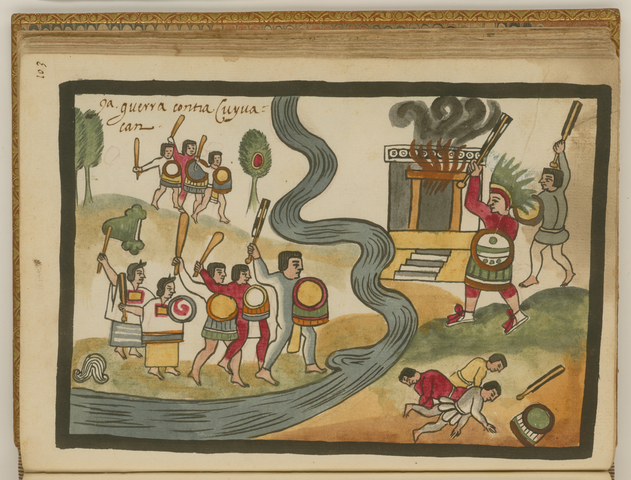 103
2a. guerra contra Cuyua=
can